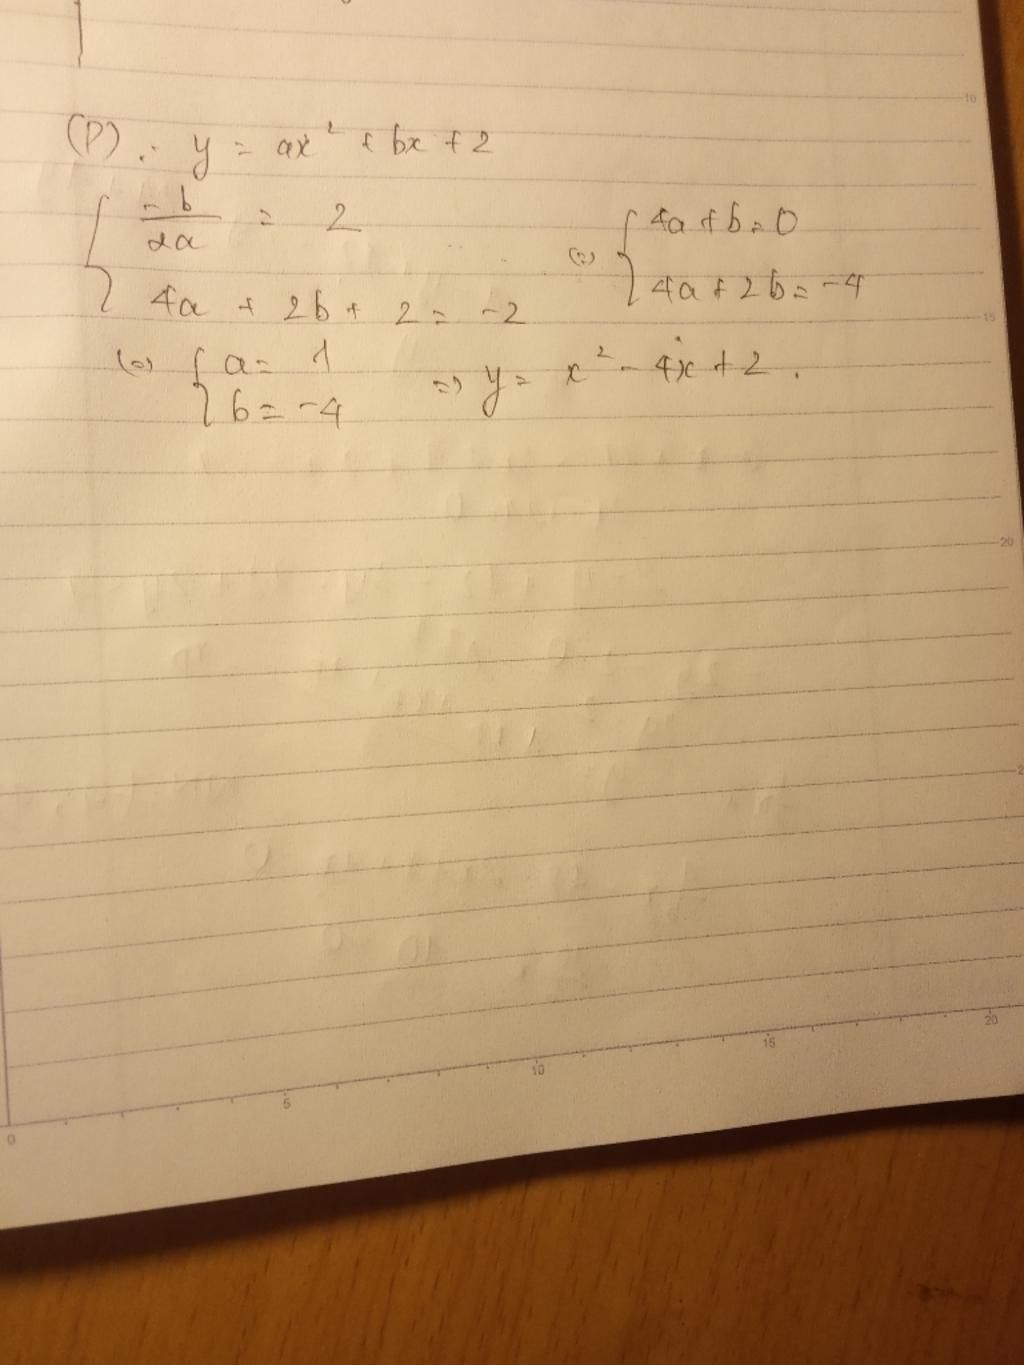 10
(P) : y = ax² + bx + 2
{ -b/2a = 2
4a + 2b + 2 = -2
(=) { 4a + b = 0
4a + 2b = -4
15
(=) { a = 1
b = -4
=) y = x² - 4x + 2 .
20
2
0 5 10 15 20